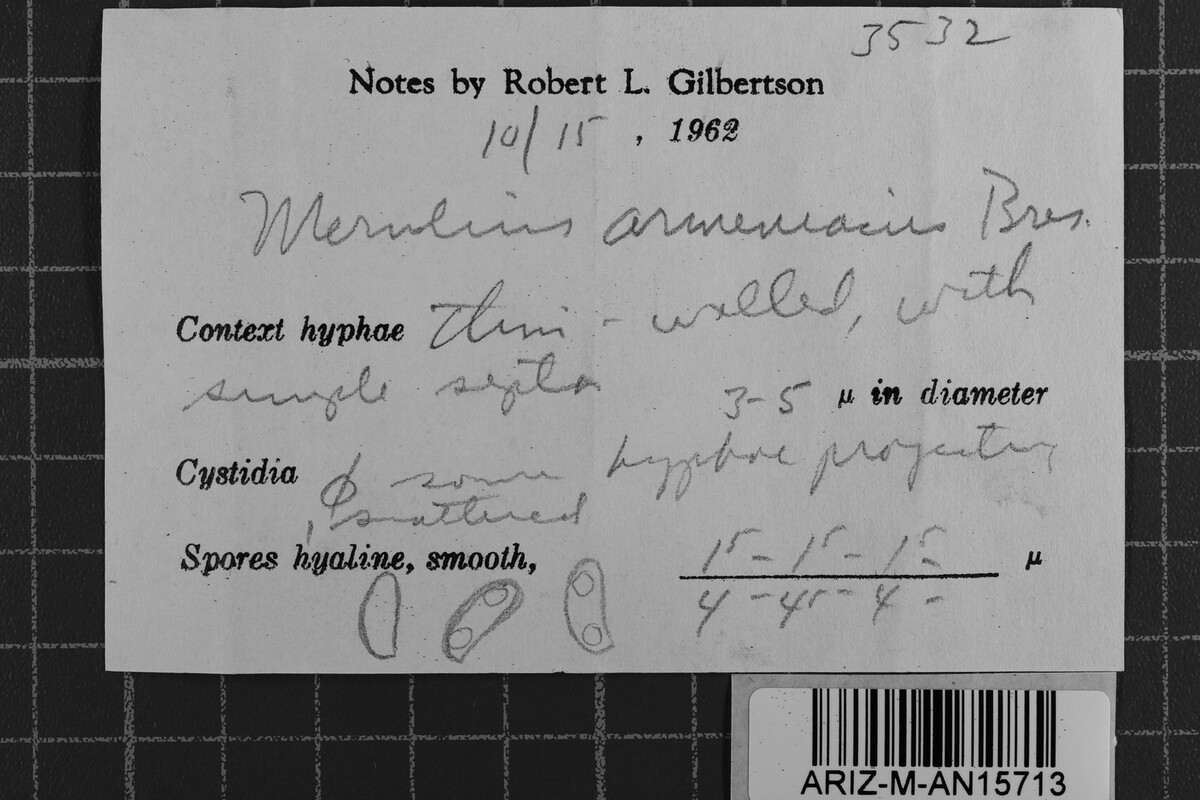 3532
Notes by Robert L. Gilbertson
10/15, 1962
Merulius armeniacus Bres.
Context hyphae thin-walled, with
simple septa 3-5 μ in diameter
Cystidia ϕ some hyphae projecting
scattered
Spores hyaline, smooth, 15 - 15 - 15 - μ
4 - 45 - 4 -
ARIZ-M-AN15713